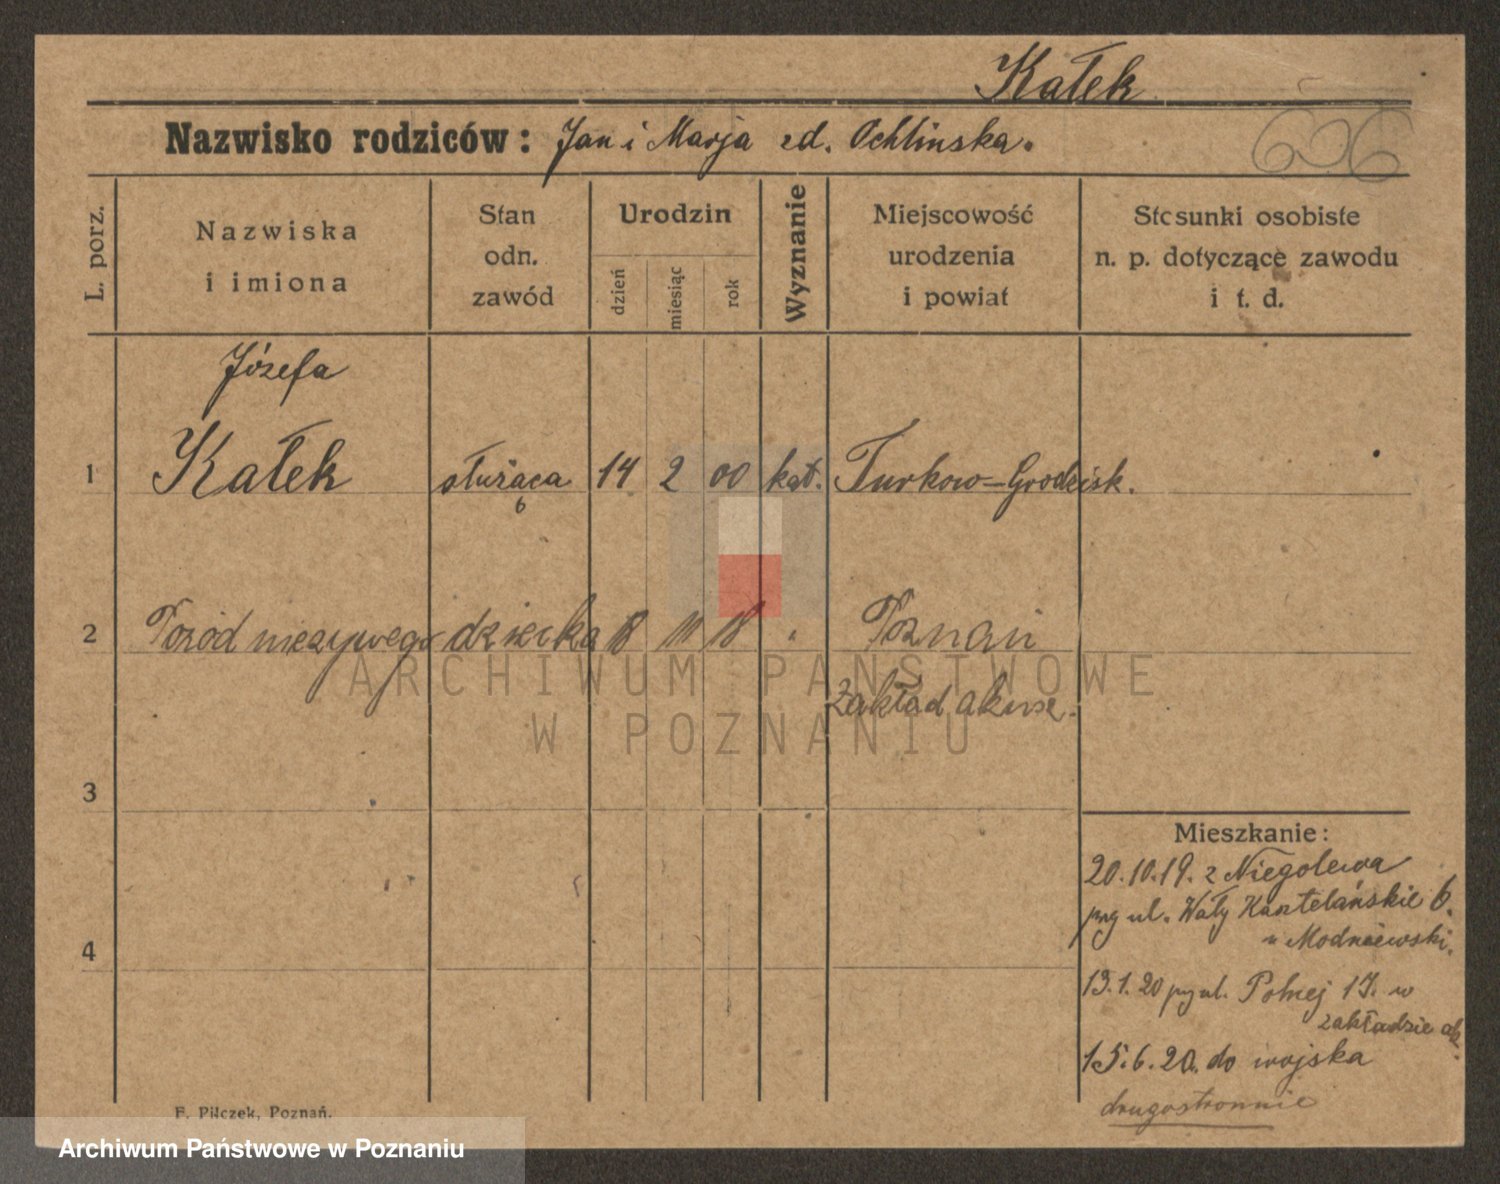 Kałek
Nazwisko rodziców: Jan i Marja zd. Ochlinska.
606
L. porz.
Nazwiska
i imiona
Stan
odn.
zawód
Urodzin
dzień
miesiąc
rok
Wyznanie
Miejscowość
urodzenia
i powiat
Stosunki osobiste
n. p. dotyczące zawodu
i t. d.
Józefa
1 Kałek służąca 14 2 00 kat. Turkow-Grodzisk.
2 Poród nieżywego dziecka 18 18 " Poznań
Zakład akusz.
3
4
Mieszkanie:
20.10.19. z Niegolewa
przy ul. Wały Kasztelańskie 6.
u Modniewski.
13.1.20 przy ul. Polnej 17. w
zakładzie
15.6.20. do wojska
drugostronnie
F. Pilczek, Poznań.
ARCHIWUM PAŃSTWOWE
W POZNANIU
Archiwum Państwowe w Poznaniu